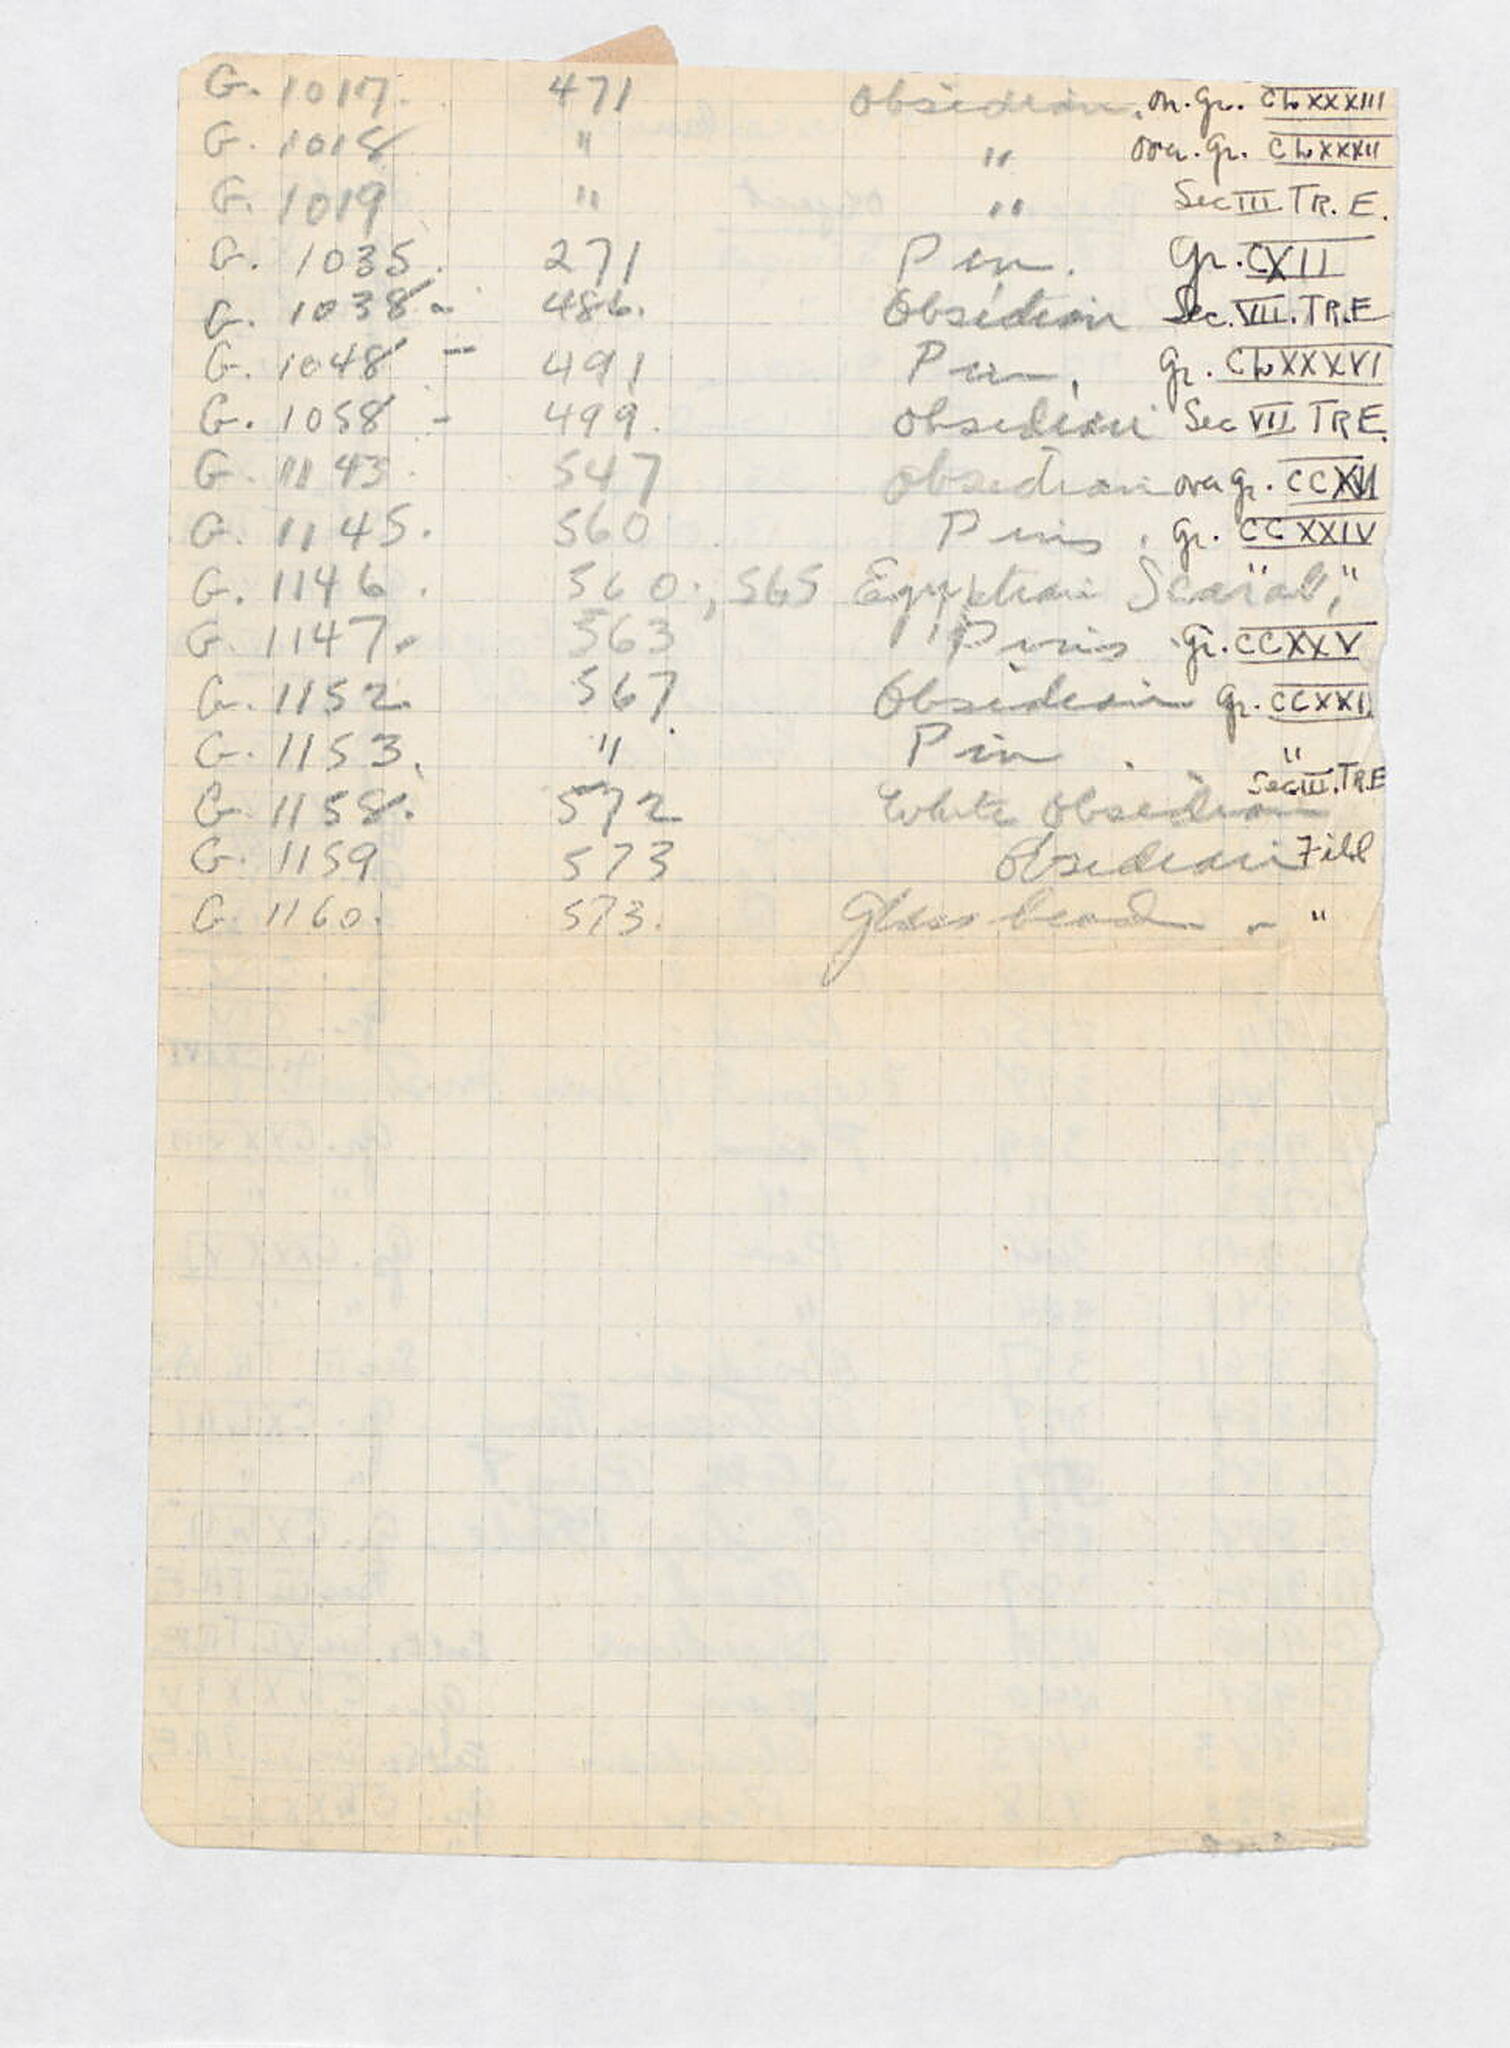 G. 1017. 471 Obsidian. on. Gr. CLXXXIII
G. 1018 " " over. Gr. CLXXXII
G. 1019 " " Sec III TR. E.
G. 1035. 271 Pin. Gr. CXII
G. 1038 - 486. Obsidian Sec. VIII. TR.E
G. 1048 - 491 Pin, Gr. CLXXXVI
G. 1058 - 499. Obsidian Sec VII TR E.
G. 1143. 547 Obsidian over gr. CCXVI
G. 1145. 560 Pins. Gr. CCXXIV
G. 1146. 560., 565 Egyptian Scarab, " "
G. 1147. 563 Pins Gr. CCXXV
G. 1152. 567. Obsidian Gr. CCXXI
G. 1153. " Pin. "
G. 1158. 572 White Obsidian Sec III. TR.E
G. 1159 573 Obsidian Fill
G. 1160. 573. Glass bead - "